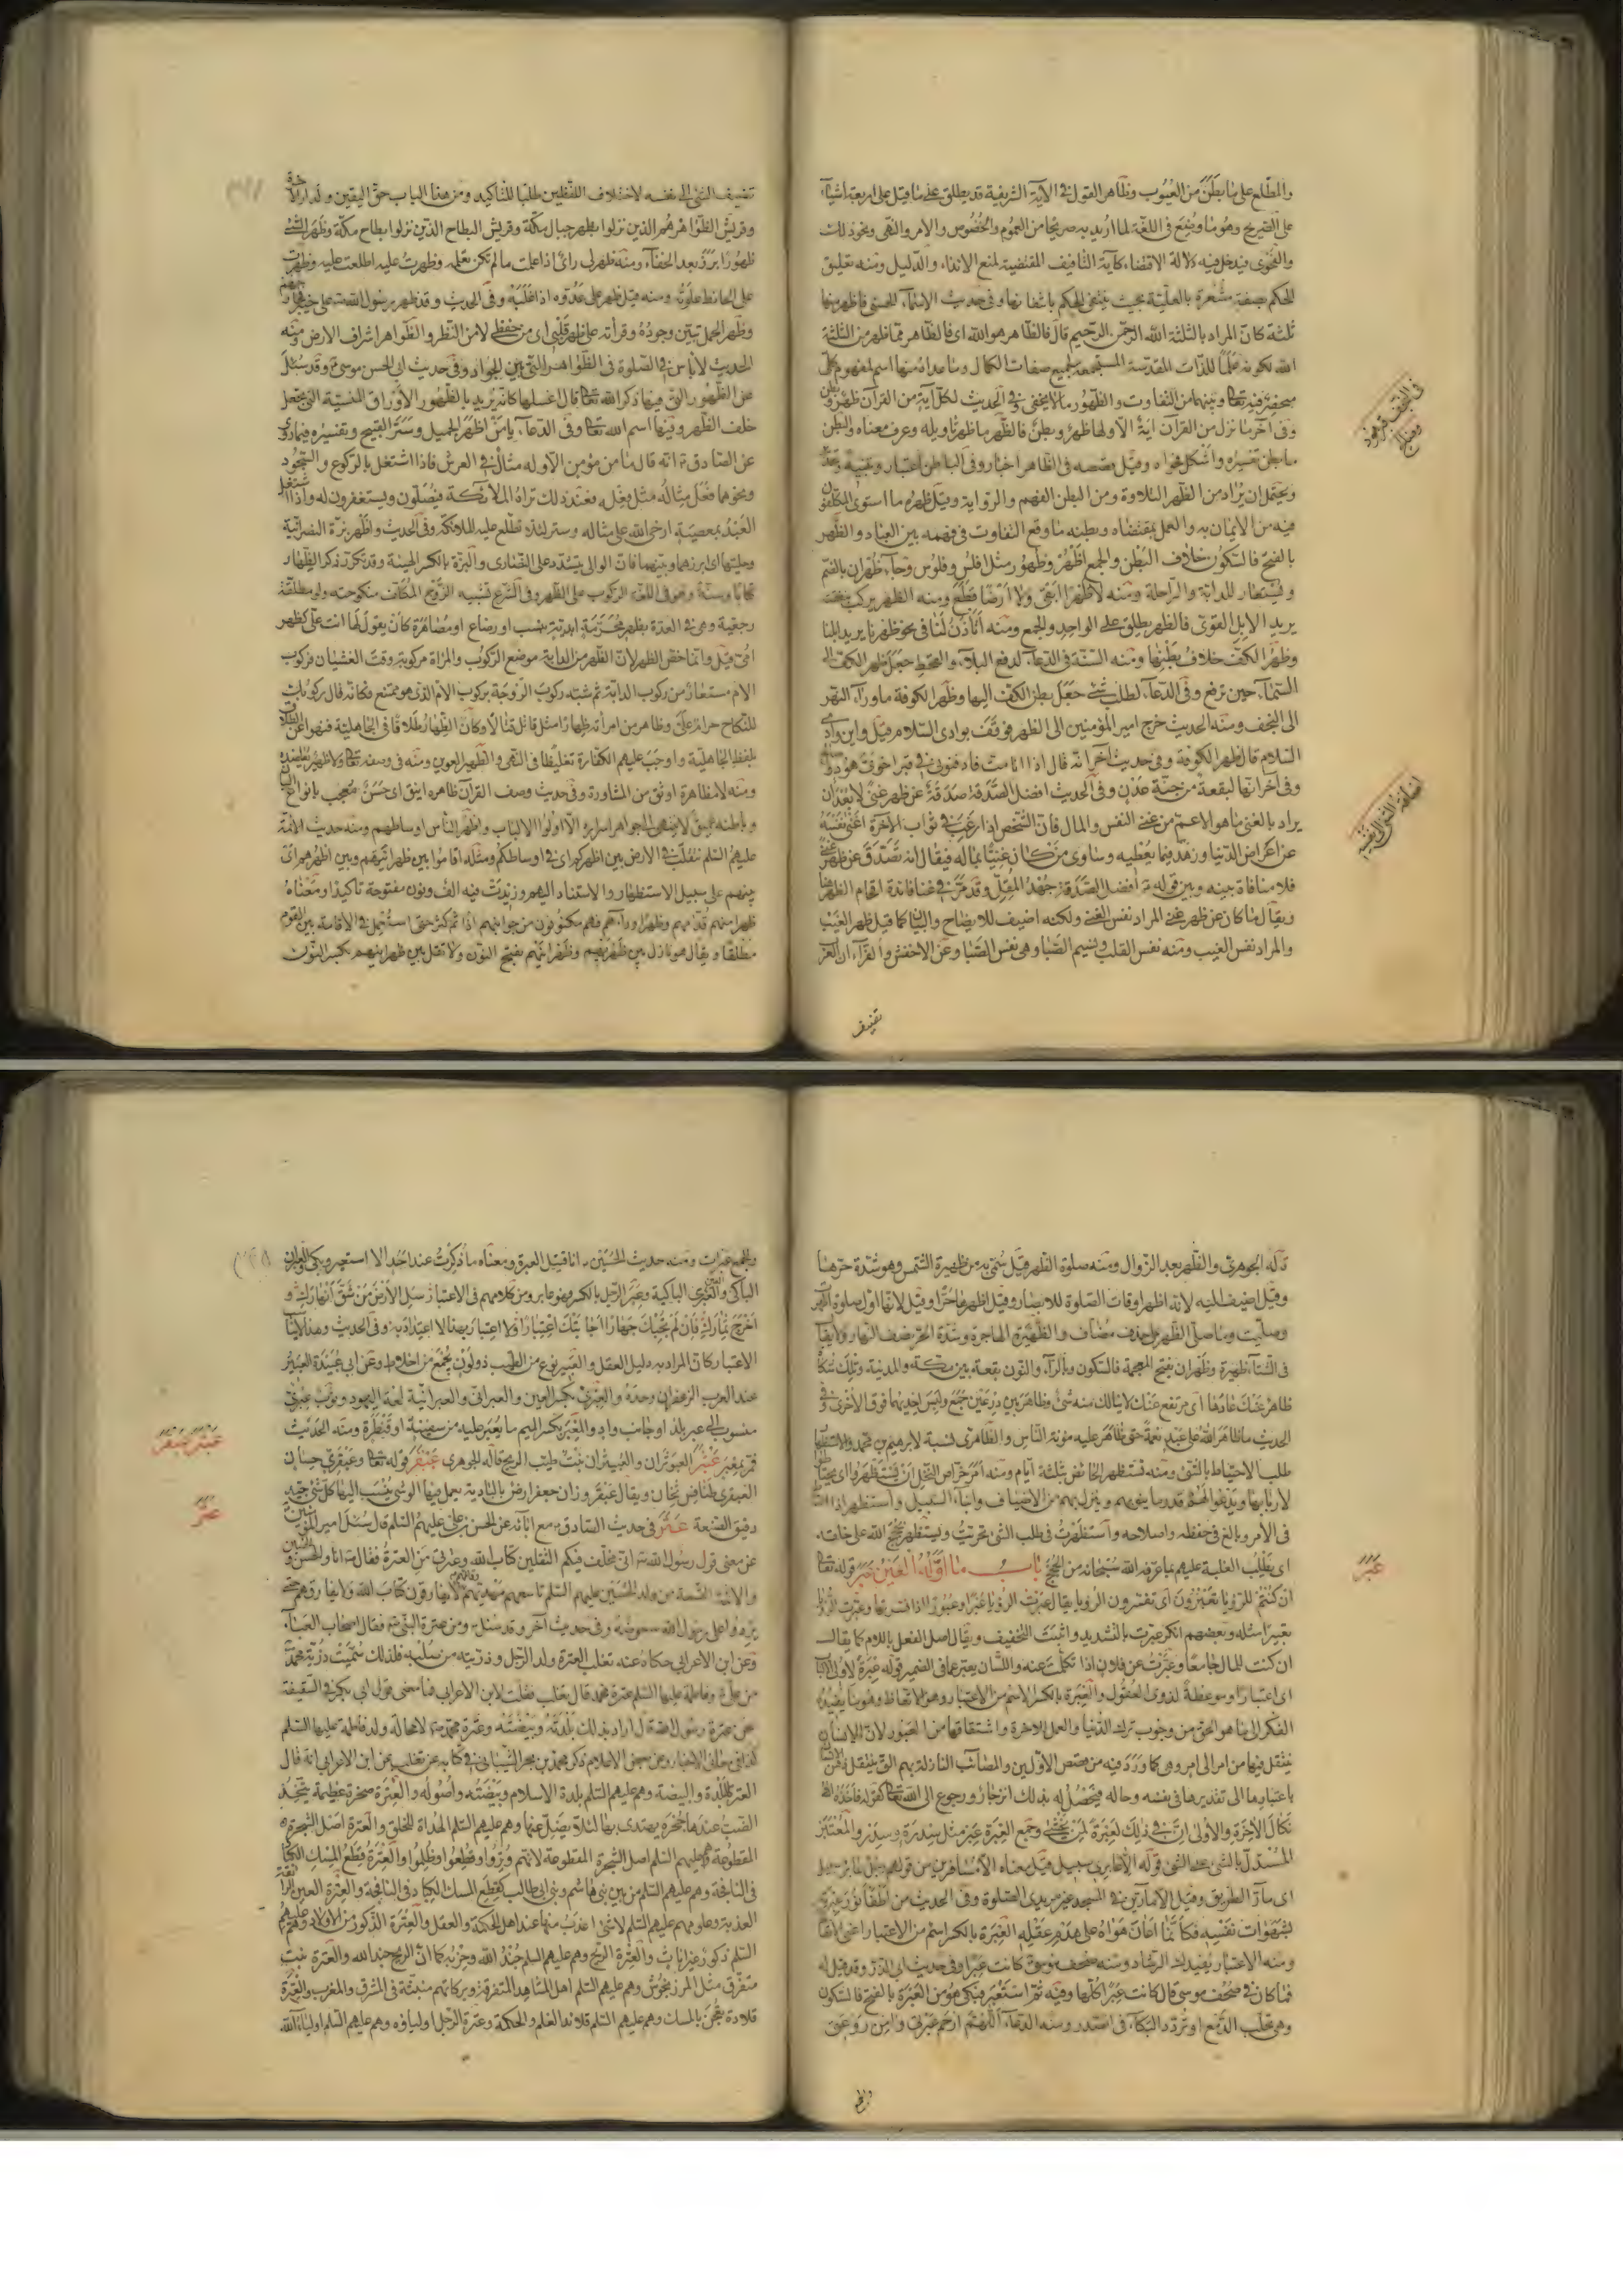 والمطلع على ما بطن من الغيوب وظاهر القول في الآية الشريفة قد يطلق على ما قيل على اربعة اشياء
على الصريح وهو ما وضع في اللغة لما اريد به صريحا من العموم والخصوص والامر والنهى ونحو ذلك
والفحوى فيدخل فيه دلالة الاقتضاء كآية التأفيف المقتضية لمنع الايذاء والدليل ومنه تعليق
الحكم بصفة مشعرة بالعلية بحيث ينتفى الحكم بانتفائها وفى حديث الاسماء الحسنى فاظهر منها
ثلثة كان المراد بالثلثة الله الرحمن الرحيم قال فالظاهر هو الله اى فالظاهر مما ظهر من الثلثة
الله لكونه علما للذات المقدسة المستجمعة لجميع صفات الكمال وما عداه منها اسم لمفهوم كلى
وبينهما من التفاوت والظهور ما لا يخفى وفى الحديث لكل آية من القرآن ظهر وبطن
وفى آخر ما نزل من القرآن آية الا ولها ظهر وبطن فالظهر ما ظهر تأويله وعرف معناه والبطن
ما بطن تفسيره واشكل فحواه وقيل قصصه فى الظاهر اخبار وفى الباطن اعتبار وتنبيه
ويحتمل ان يراد من الظهر التلاوة ومن البطن الفهم والرواية وقيل ظهره ما استوى المكلفون
فيه من الايمان به والعمل بمقتضاه وبطنه ما وقع التفاوت فى فهمه بين العباد والظهر
بالفتح فالسكون خلاف البطن والجمع اظهر وظهور مثل افلس وفلوس وجاء ظهران بالضم
ويستعار للدابة والراحلة ومنه لا ظهرا ابقى ولا ارضا قطع ومنه الظهر يركب
يريد الابل القوى فالظهر يطلق على الواحد والجمع ومنه أتأذن لنا فى نحو ظهرنا يريد ابلنا
وظهر الكف خلاف بطنها ومنه السنة فى الدعاء لدفع البلاء والقحط جعل ظهر الكف الى
السماء حين ترفع وفى الدعاء لطلب شئ جعل بطن الكف اليها وظهر الكوفة ما وراء النهر
الى النجف ومنه الحديث خرج امير المؤمنين الى الظهر فوقف بوادى السلام قيل واين وادى
السلام قال ظهر الكوفة وفى حديث آخر انه قال اذا انا مت فادفنونى فى قبر اخوى هود وصالح
وفى آخر انها لبقعة من جنة عدن وفى الحديث افضل الصدقة صدقة عن ظهر غنى لا بعد ان
يراد بالغنى ما هو الاعم من غنى النفس والمال فان الشخص اذا رغب فى ثواب الآخرة اغنى نفسه
عن اعراض الدنيا وزهد فيما يعطيه وساوى من كان غنيا بماله فيقال انه تصدق عن ظهر غنى
فلا منافاة بينه وبين قوله افضل الصدقة جهد المقل وقد مر فى غنا فائدة اقحام الظهر هنا
ويقال ما كان عن ظهر غنى المراد نفس الغنى ولكنه اضيف للايضاح والبيان كما قيل ظهر الغيب
والمراد نفس الغيب ومنه نفس القلب ونسيم الصبا وهى نفس الصبا وعن الاخفش والفراء ان العرب
تضيف
اضافة الشئ الى نفسه
تضيف الشئ الى نفسه لاختلاف اللفظين طلبا للتأكيد ومن هذا الباب حق اليقين ولدار الآخرة
وقريش الظواهر هم الذين نزلوا بظهر جبال مكة وقريش البطاح الذين نزلوا بطاح مكة وظهر الشئ
ظهورا برز بعد الخفاء ومنه ظهر لى رأى اذا علمت ما لم تكن تعلمه وظهرت عليه اطلعت عليه وظهرت
على الحائط علوته ومنه قيل ظهر على عدوه اذا غلبه وفى الحديث وقد ظهر رسول الله على خيبر
وظهر الحمل تبين وجوده وقرأته على ظهر قلبى اى من حفظى لا من النظر والظواهر اشراف الارض ومنه
الحديث لا بأس فى الصلوة فى الظواهر التى بين الجواد وفى حديث ابى الحسن موسى وقد سئل
عن الظهور التى فيها ذكر الله تعالى قال اغسلها كانه يريد بالظهور الاوراق المنسية التى تجعل
خلف الظهر وفيها اسم الله تعالى وفى الدعاء يا من اظهر الجميل وستر القبيح وتفسيره فيما روى
عن الصادق انه قال ما من مؤمن الا وله مثال فى العرش فاذا اشتغل بالركوع والسجود
ونحوهما فعل مثاله مثل فعله فعند ذلك تراه الملائكة فيصلون ويستغفرون له واذا اشتغل
العبد بمعصية ارخى الله على مثاله وسترا لئلا تطلع عليه الملائكة وفى الحديث واظهر بزة النصرانية
وحليتها اى ابرزهما وبينهما فان الوالى يتشدد على النصارى والبزة بالكسر الهيئة وقد تكرر ذكر الظهار
كتابا وسنة وهو فى اللغة الركوب على الظهر وفى الشرع تشبيه الزوج المكلف منكوحته ولو مطلقة
رجعية وهى فى العدة بظهر محرمة ابدية بنسب او رضاع او مصاهرة كان يقول لها انت على كظهر
امى قيل وانما خص الظهر لان الظهر من الدابة موضع الركوب والمرأة مركوبة وقت الغشيان فركوب
الام مستعار من ركوب الدابة ثم شبه ركوب الزوجة بركوب الام الذى هو ممتنع فكانه قال ركوبك
للنكاح حرام على وظاهر من امرأته ظهارا مثل قاتل قتالا وكان الظهار طلاقا فى الجاهلية فنهوا عن الطلاق
بلفظ الجاهلية واوجب عليهم الكفارة تغليظا فى النهى والظهير العوين ومنه فى وصفه تعالى ولا ظهير يعاضده
ومنه لا مظاهرة اوثق من المشاورة وفى حديث وصف القرآن ظاهره انيق اى حسن معجب بانواع
وباطنه عميق لا ينتهى الى جواهر اسراره الا اولوا الالباب واظهر الناس اوساطهم ومنه حديث الائمة
عليهم السلم نتقلب فى الارض بين اظهركم اى فى اوساطكم ومثله اقاموا بين ظهرانيهم وبين اظهرهم اى
بينهم على سبيل الاستظهار والاستناد اليهم وزيدت فيه الف ونون مفتوحة تاكيدا ومعناه
ظهرا منهم قدامهم وظهرا وراءهم فهم مكنوفون من جوانبهم اذا ثم كثر حتى استعمل فى الاقامة بين القوم
مطلقا ويقال هو نازل بين ظهريهم وظهرانيهم بفتح النون ولا تقل بين ظهرانيهم بكسر النون
قاله الجوهرى والظهر بعد الزوال ومنه صلوة الظهر قيل سمى به من ظهيرة الشمس وهو شدة حرها
وقيل اضيف اليه لانه اظهر اوقات الصلوة للابصار وقيل اظهرها حرا وقيل لانها اول صلوة اظهرت
وصليت ومنا صلى الظهر على حذف مضاف والظهيرة الهاجرة وشدة الحر نصف النهار ولا يقال
فى الشتاء ظهيرة وظهران بفتح المعجمة فالسكون وبالراء والنون بقعة بين مكة والمدينة وتلك شكاة
ظاهر عنك عارها اى مرتفع عنك لا ينالك منه شئ وظاهر بين درعين جمع ولبس احديهما فوق الاخرى وفى
الحديث ما ظاهر الله على عبد نعمة حتى ظاهر عليه مؤنة الناس والظاهرى نسبة لابرهيم بن محمد والاستظهار
طلب الاحتياط بالشئ ومنه تستظهر الحائض بثلثة ايام ومنه أمر خراص النخل ان يستظهروا اى يحتاطوا
لاربابها ويدعوا لهم قدر ما ينوبهم وينزل بهم من الاضياف وابناء السبيل واستظهر اذا احتاط
فى الامر وبالغ فى حفظه واصلاحه واستظهرت فى طلب الشئ تحريت ويستظهر بحجج الله على خلقه
اى يطلب الغلبة عليهم بما عرفه الله سبحانه من الحجج باب ما اوله العين عبر قوله تعالى
ان كنتم للرؤيا تعبرون اى تفسرون الرؤيا يقال عبرت الرؤيا عبرا وعبورا اذا فسرتها وعبرت الرؤيا
تعبيرا مثله وبعضهم انكر عبرت بالتشديد واثبت التخفيف ويقال اصل الفعل باللام كما يقال
ان كنت للمال جامعا وعبرت عن فلان اذا تكلمت عنه واللسان يعبر عما فى الضمير قوله عبرة لاولى الالباب
اى اعتبارا وموعظة لذوى العقول والعبرة بالكسر الاسم من الاعتبار وهو الاتعاظ وهو ما يفيده
الفكر الى ما هو الحق من وجوب ترك الدنيا والعمل للآخرة واشتقاقها من العبور لان الانسان
ينتقل فيها من امر الى امر وهى كما ورد فيه من قصص الاولين والمصائب النازلة بهم التى ينتقل ذهن الانسان
باعتبارها الى تقديرها فى نفسه وحاله فيحصل له بذلك انزجار ورجوع الى الله تعالى كقوله فأخذه الله
نكال الآخرة والاولى ان فى ذلك لعبرة لمن يخشى وجمع العبرة عبر مثل سدرة وسدر والمعتبر
المستدل بالشئ على الشئ قوله الا عابرى سبيل قيل معناه الا مسافرين من قولهم رجل عابر سبيل
اى مار الطريق وقيل الا مارين فى المسجد غير مريدى الصلوة وفى الحديث من اطفأ نور عبرته
بشهوات نفسه فكأنما اعان هواه على هدم عقله العبرة بالكسر اسم من الاعتبار اعنى الاتعاظ
ومنه الاعتبار يفيدك الرشاد ومنه صحف موسى كانت عبرا وفى حديث ابى الذر وقد قيل له
فما كان فى صحف موسى قال كانت عبرا كلها وفيه ثم استعبر فبكى هو من العبرة بالفتح فالسكون
وهى تحلب الدمع او تردد البكاء فى الصدر ومنه الدعاء اللهم ارحم عبرتى وآمن روعتى
والجمع
عبر
والجمع عبرات ومنه حديث الحسين انا قتيل العبرة ومعناه ما ذكرت عند احد الا استعبر وبكى والعبران
الباكى والعبرى الباكية وعبر الرجل بالكسر فهو عابر ومن كلامهم فى الاعتبار سل الارض من شق انهارك و
اخرج ثمارك فان لم تجبك جهارا اجابتك اعتبارا
الاعتبار كان المراد به دليل العقل والعبير نوع من الطيب ذو لون يجمع من اخلاط وعن ابى عبيدة العبير
عند العرب الزعفران وحده والعبرى بكسر العين والعبرانى والعبرانية لغة اليهود
منسوب الى عبر بلد او جانب واد والمعبر بكسر الميم ما يعبر عليه من سفينة او قنطرة ومنه الحديث
عبثر العبوثران والعبيثران نبت طيب الريح قاله الجوهرى عبقر قوله تعالى وعبقرى حسان
العبقرى طنافس ثخان ويقال عبقر وزان جعفر ارض بالبادية يعمل فيها الوشى ينسب اليها كل شئ جيد
دقيق الصنعة عتر فى حديث الصادق مع آبائه عن الحسن بن على عليهم السلم قال سئل امير المؤمنين
عن معنى قول رسول الله انى مخلف فيكم الثقلين كتاب الله وعترتى من العترة فقال انا والحسن والحسين
والائمة التسعة من ولد الحسين عليهم السلم تاسعهم مهديهم وقائمهم لا يفارقون كتاب الله ولا يفارقهم حتى
يردوا على رسول الله حوضه وفى حديث آخر وقد سئل ومن عترة النبى فقال اصحاب العباء
وعن ابن الاعرابى حكاه عنه تغلب العترة ولد الرجل وذريته من صلبه فلذلك سميت ذرية محمد
من على وفاطمة عليها السلم عترة محمد قال ثعلب فقلت لابن الاعرابى فما معنى قول ابى بكر فى السقيفة
نحن عترة رسول الله قال اراد بذلك بلدته وبيضته وعترة محمد لا محالة ولد فاطمة عليها السلم
كذا فى معانى الاخبار وعن بعض الاعلام ذكر محمد بن بحر الشيبانى فى كتابه عن تغلب عن ابن الاعرابى انه قال
العترة البلدة والبيضة وهم عليهم السلم بلدة الاسلام وبيضته واصوله والعترة صخرة عظيمة يتخذ
الضب عندها جحره يهتدى بها لئلا يضل عنها وهم عليهم السلم الهداة للخلق والعترة اصل الشجرة
المقطوعة وهم عليهم السلم اصل الشجرة المقطوعة لانهم وتروا وقطعوا وظلموا والعترة قطع المسك الكبار
فى النافجة وهم عليهم السلم من بين بنى هاشم وبنى ابى طالب كقطع المسك الكبار فى النافجة والعترة العين الرائقة
العذبة وعلومهم عليهم السلم لا شئ اعذب منها عند اهل الحكمة والعقل والعترة الذكور من الاولاد وهم عليهم
السلم ذكور غير اناث والعترة الريح وهم عليهم السلم جند الله وحزبه كما ان الريح جند الله والعترة نبت
متفرق مثل المرزنجوش وهم عليهم السلم اهل المشاهد المتفرقة وبركاتهم منبثة فى الشرق والمغرب والعترة
قلادة تعجن بالمسك وهم عليهم السلم قلائد العلم والحكمة وعترة الرجل اولياؤه وهم عليهم السلم اولياء الله
عبثر عبقر
عتر